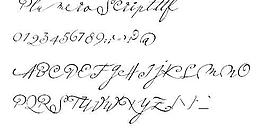 Plumero Script Mf
0123456789.,:;!?@
ABCDEFGHIJKLMNO
PQRSTUVWXYZ/\-_